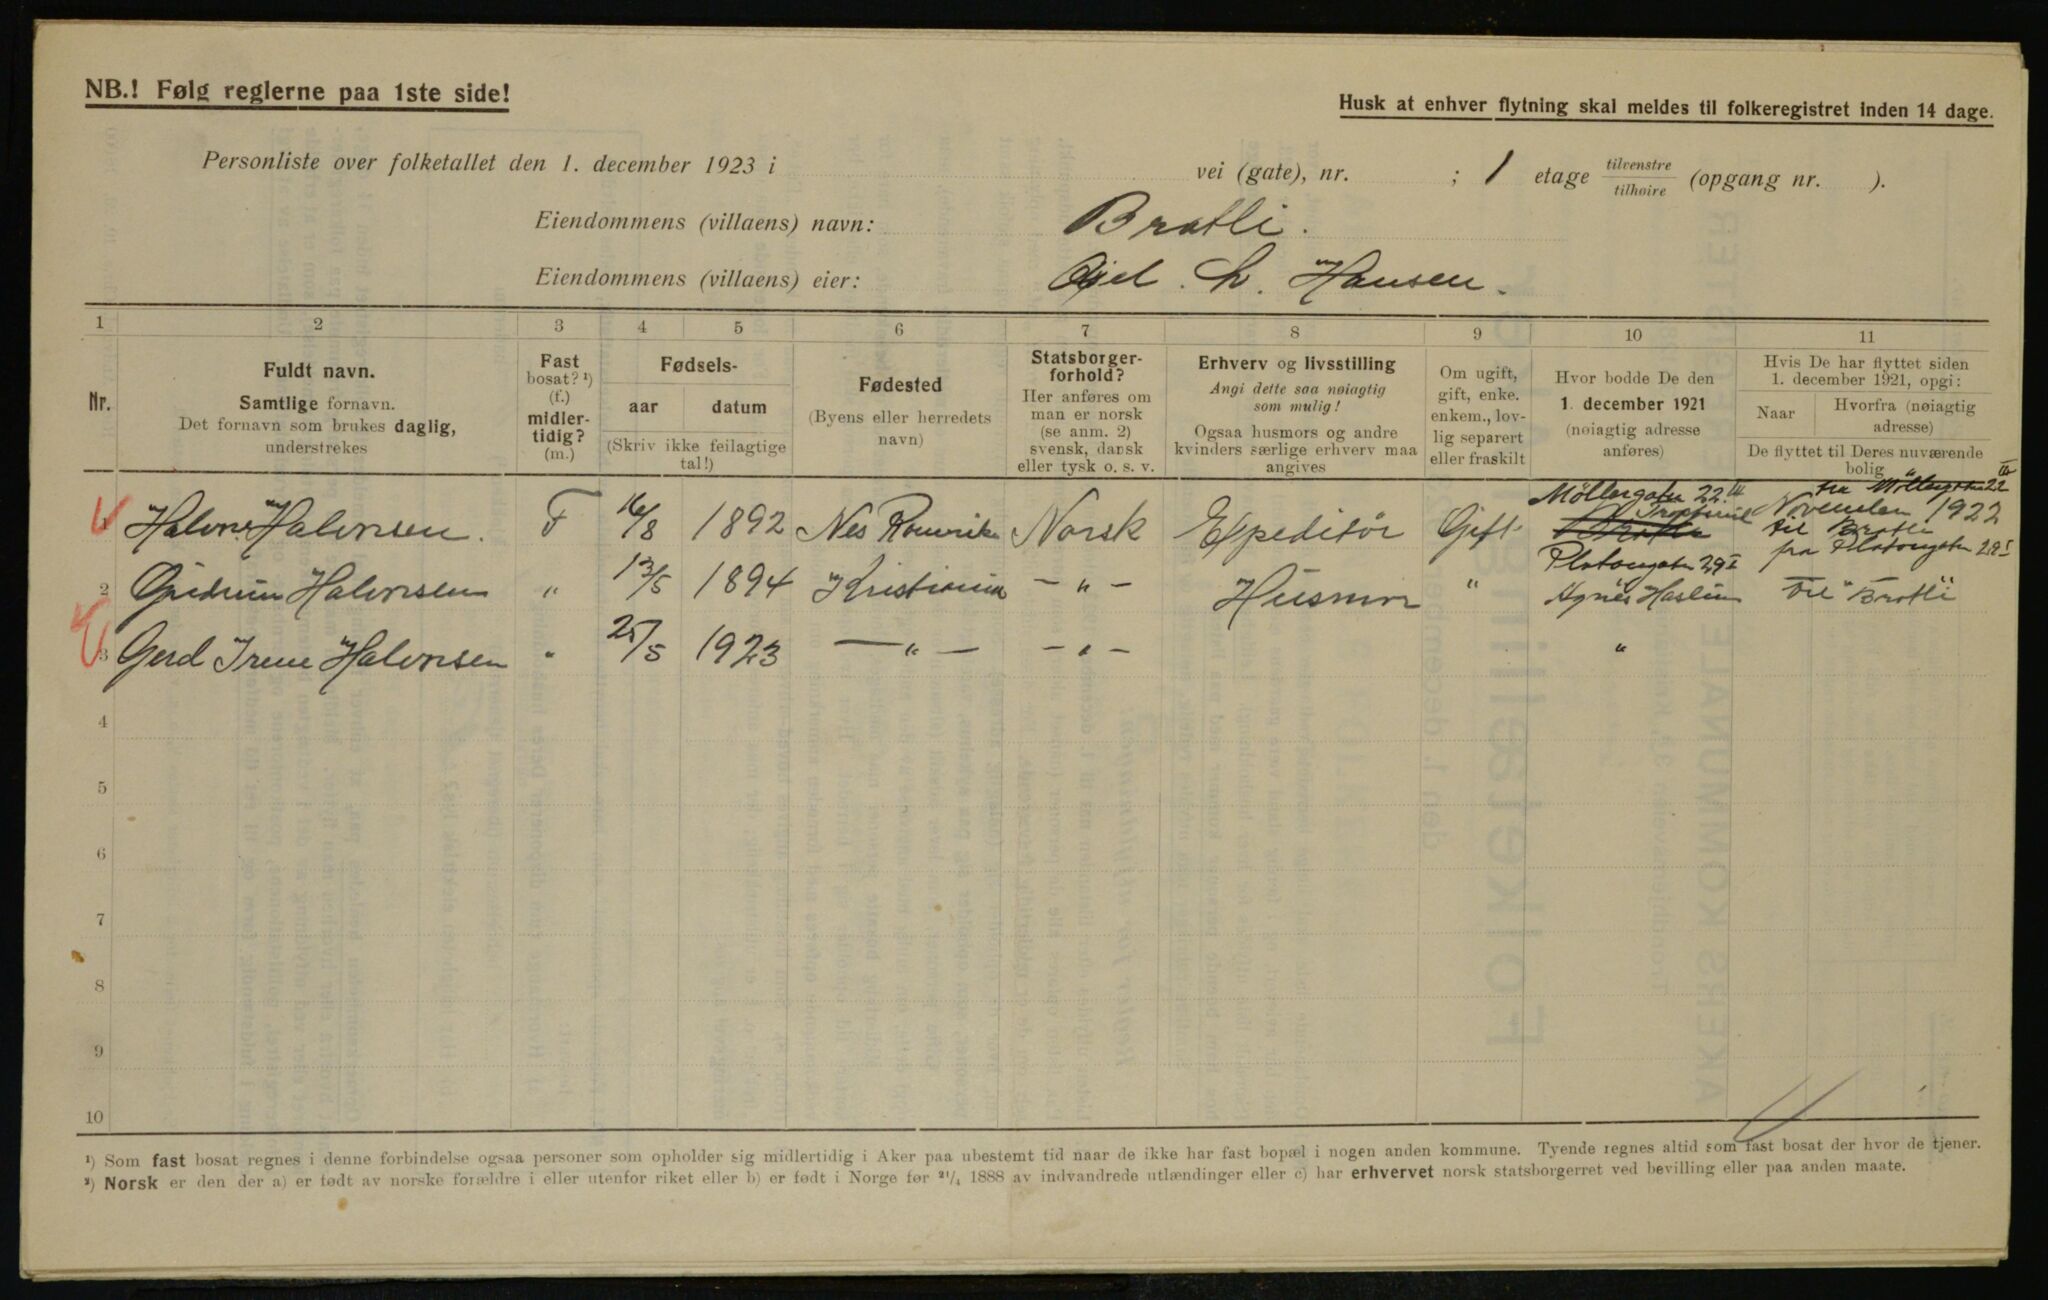 NB.! Følg reglerne paa 1ste side!
Husk at enhver flytning skal meldes til folkeregistret inden 14 dage.
Personliste over folketallet den 1. december 1923 i vei (gate), nr. ; 1 etage tilvenstre tilhøire (opgang nr. ).
Eiendommens (villaens) navn: Bratli.
Eiendommens (villaens) eier: Hansen.
1 2 3 4 5 6 7 8 9 10 11
Nr.
Fuldt navn.
Samtlige fornavn.
Det fornavn som brukes daglig,
understrekes
Fast
bosat? ¹)
(f.)
midler-
tidig?
(m.)
Fødsels-
aar datum
(Skriv ikke feilagtige
tal!)
Fødested
(Byens eller herredets
navn)
Statsborger-
forhold?
Her anføres om
man er norsk
(se anm. 2)
svensk, dansk
eller tysk o. s. v.
Erhverv og livsstilling
Angi dette saa nøiagtig
som mulig!
Ogsaa husmors og andre
kvinders særlige erhverv maa
angives
Om ugift,
gift, enke.
enkem., lov-
lig separert
eller fraskilt
Hvor bodde De den
1. december 1921
(nøiagtig adresse
anføres)
Hvis De har flyttet siden
1. december 1921, opgi:
Naar Hvorfra (nøiagtig
adresse)
De flyttet til Deres nuværende
bolig
Halvor Halvorsen. F 16/8 1892 Nes Romerike Norsk Expeditør Gift
Möllergaten 22 III
fra Möllergaten 22 III
November 1922
til Bratli
fra Platousgaten 29 I
2 Gudrun Halvorsen " 13/5 1894 Kristiania - " - Husmor " Platousgaten 29 I
Agnes Haslum Til Bratli
3 Gerd Irene Halvorsen " 25/5 1923 - " - - " - "
4
5
6
7
8
9
10
¹) Som fast bosat regnes i denne forbindelse ogsaa personer som opholder sig midlertidig i Aker paa ubestemt tid naar de ikke har fast bopæl i nogen anden kommune. Tyende regnes altid som fast bosat der hvor de tjener.
²) Norsk er den der a) er født av norske forældre i eller utenfor riket eller b) er født i Norge før 21/4 1888 av indvandrede utlændinger eller c) har erhvervet norsk statsborgerret ved bevilling eller paa anden maate.